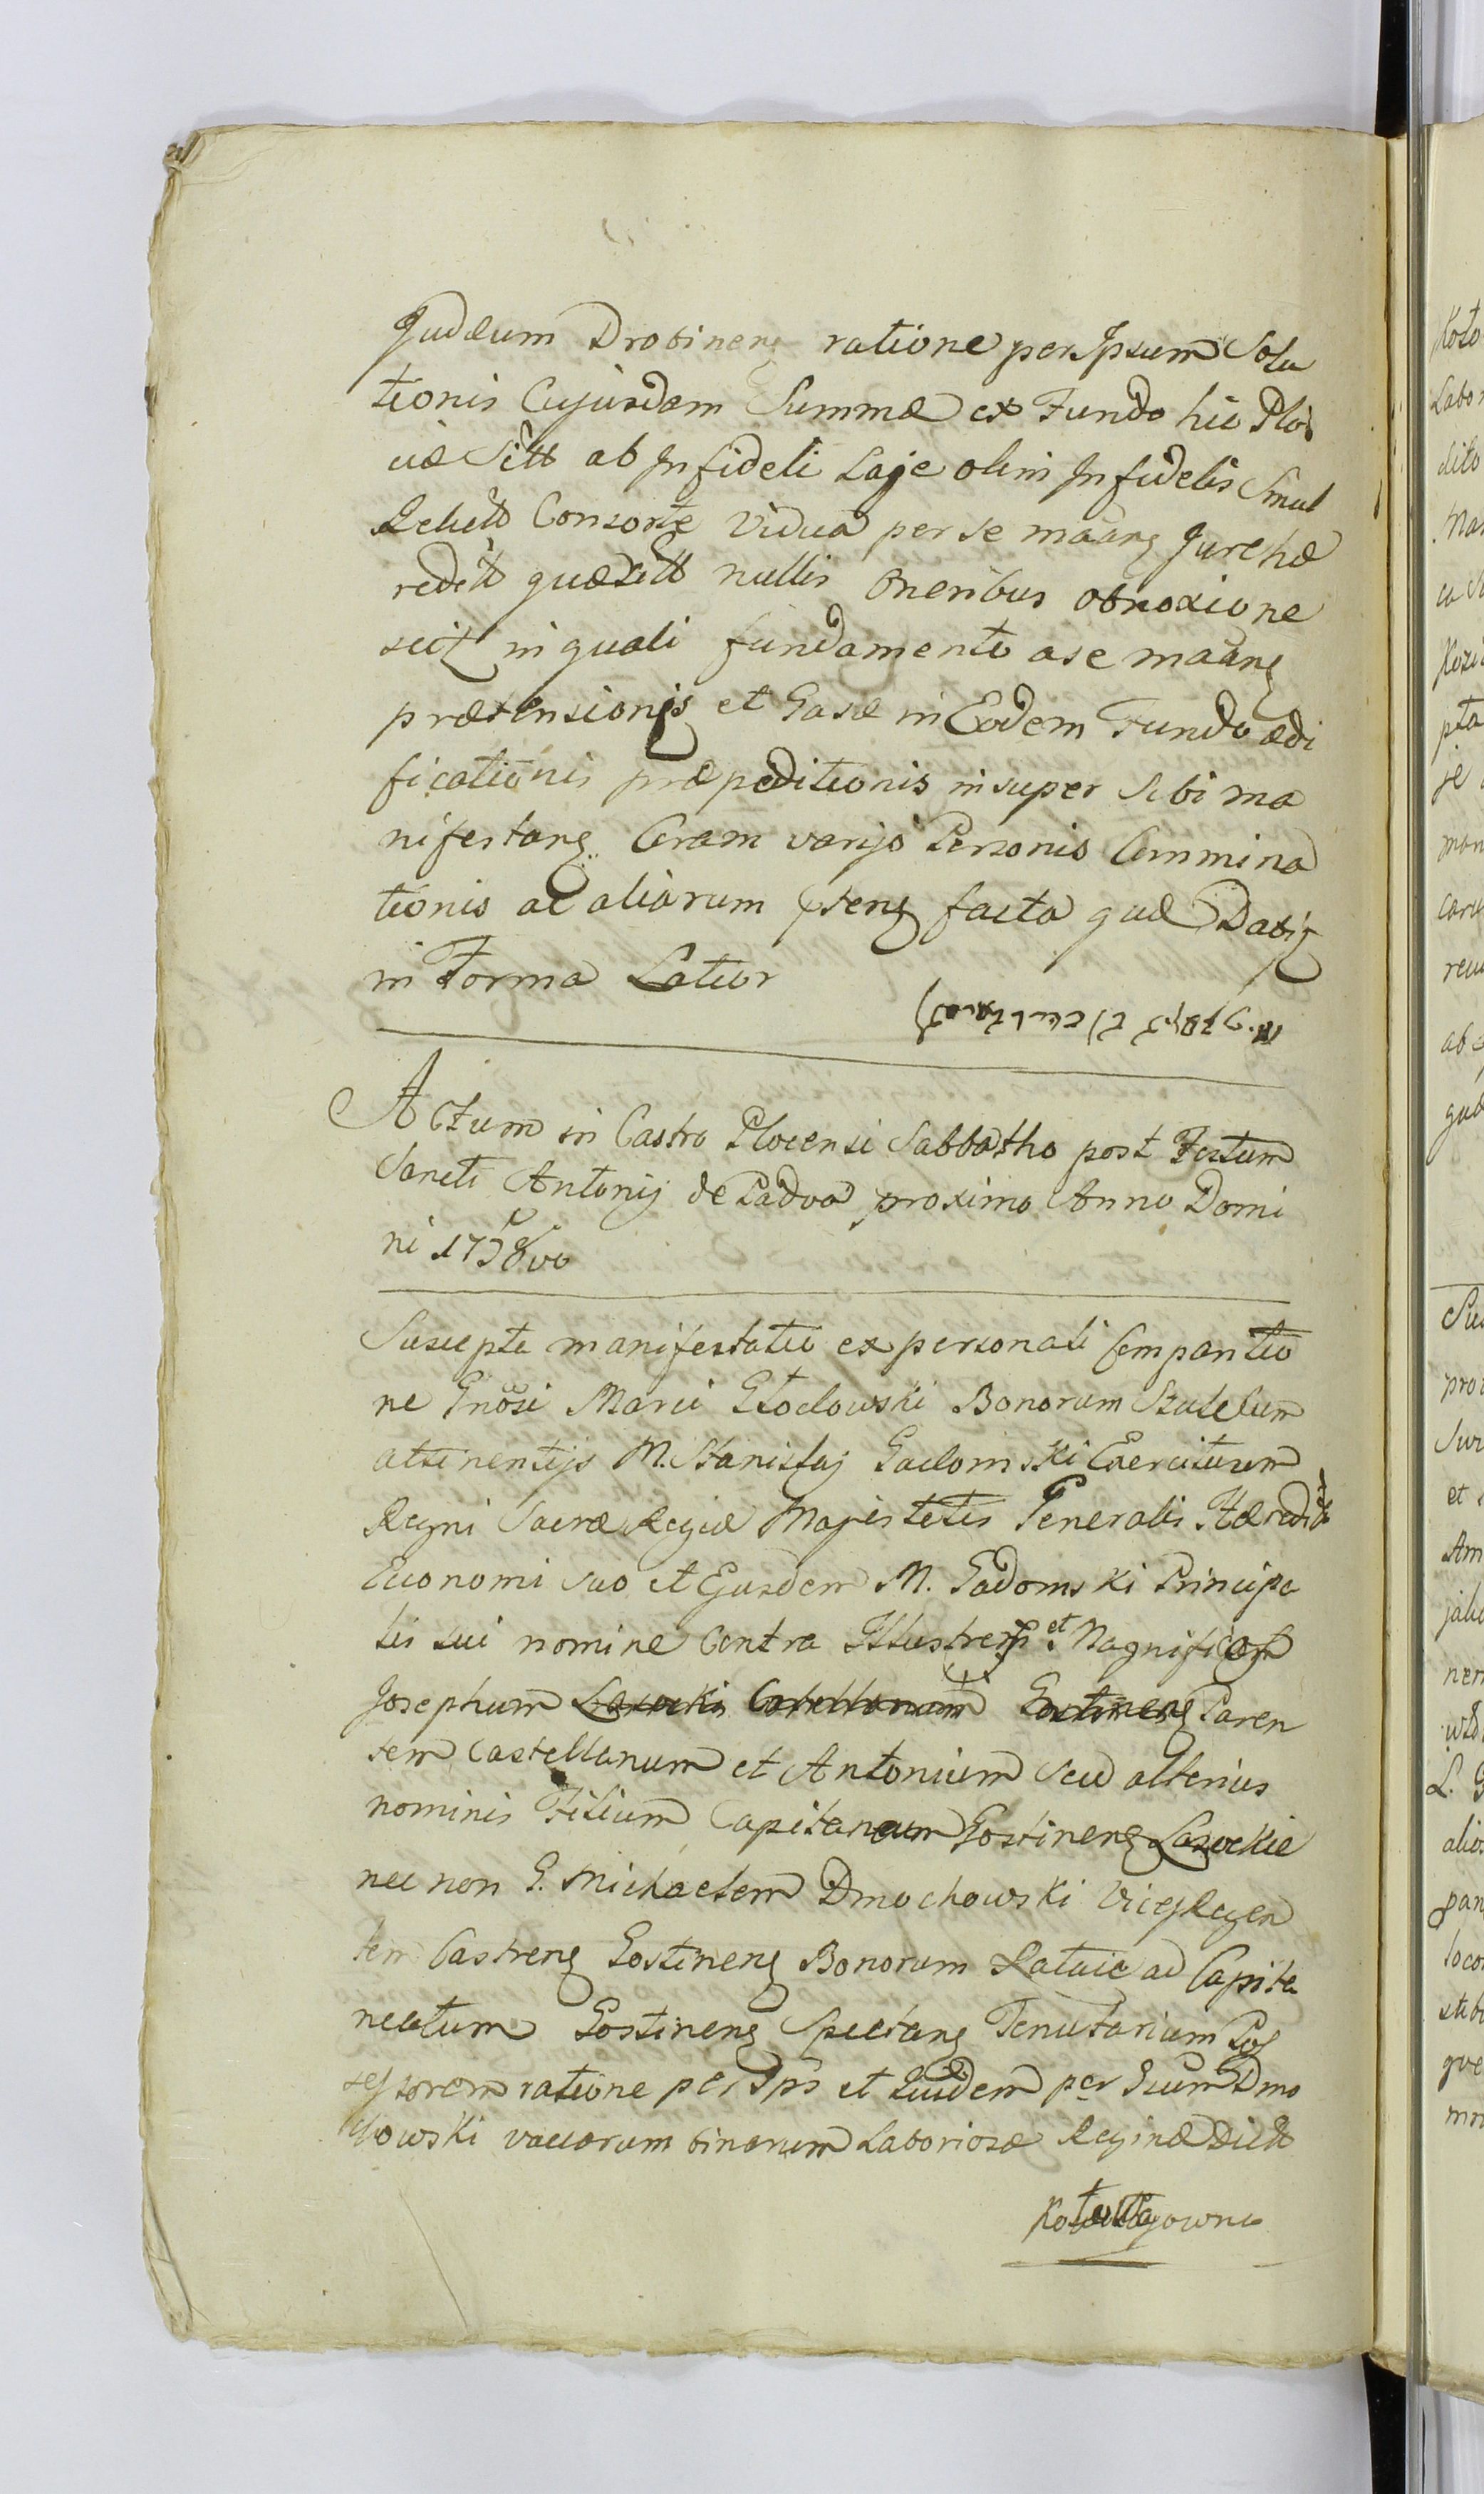 Judæum Drobinen ratione per Ipsum Solu
tionis Cujusdam Summæ ex Fundo hic Plo
ciæ Sitt ab Infideli Laje olim Infidelis Smul
Relicta Consorte Vidua per se maan Jure hæ
redit quæsitt nullis Oneribus obnoxio ne
scit in quali fundamento a se maan
prætensionis et Casæ in Eodem Fundo ædi
ficationis præpeditionis insuper Sibi ma
nifestan Coram varijs Personis Commina
tionis ac aliorum psen facta quæ Dabit
in Forma Latior
Actum in Castro Plocensi Sabbatho post Festum
Sancti Antonij de Padva proximo Anno Domi
ni 1778vo
Suscepta manifestatio ex personali Comparitio
ne Gnosi Marci Głocłowski Bonorum
attinentijs M. Stanislaj Gadomski Exercituum
Regni Sacræ Regiæ Majestatis Generalis Hæredit
Economi suo et Ejusdem M. Gadomski Principa
lis sui nomine Contra Illustrem et Magnificos
Josephum Lasocki Castellanum Gostinen Paren
tem Castellanum et Antonium seu alterius
nominis Filium Capitaneum Gostinen Lasockie
nec non G. Michaelem Dmochowski Vicegeren
tem Castren Gostinen Bonorum Rataie ad Capita
neatum Gostinen Spectan Tenutarium Pos
sessorem ratione per Ips et Eiusdem per Gsum Dmo
chowski vaccarum binarum Laboriosæ Reginæ Dictt